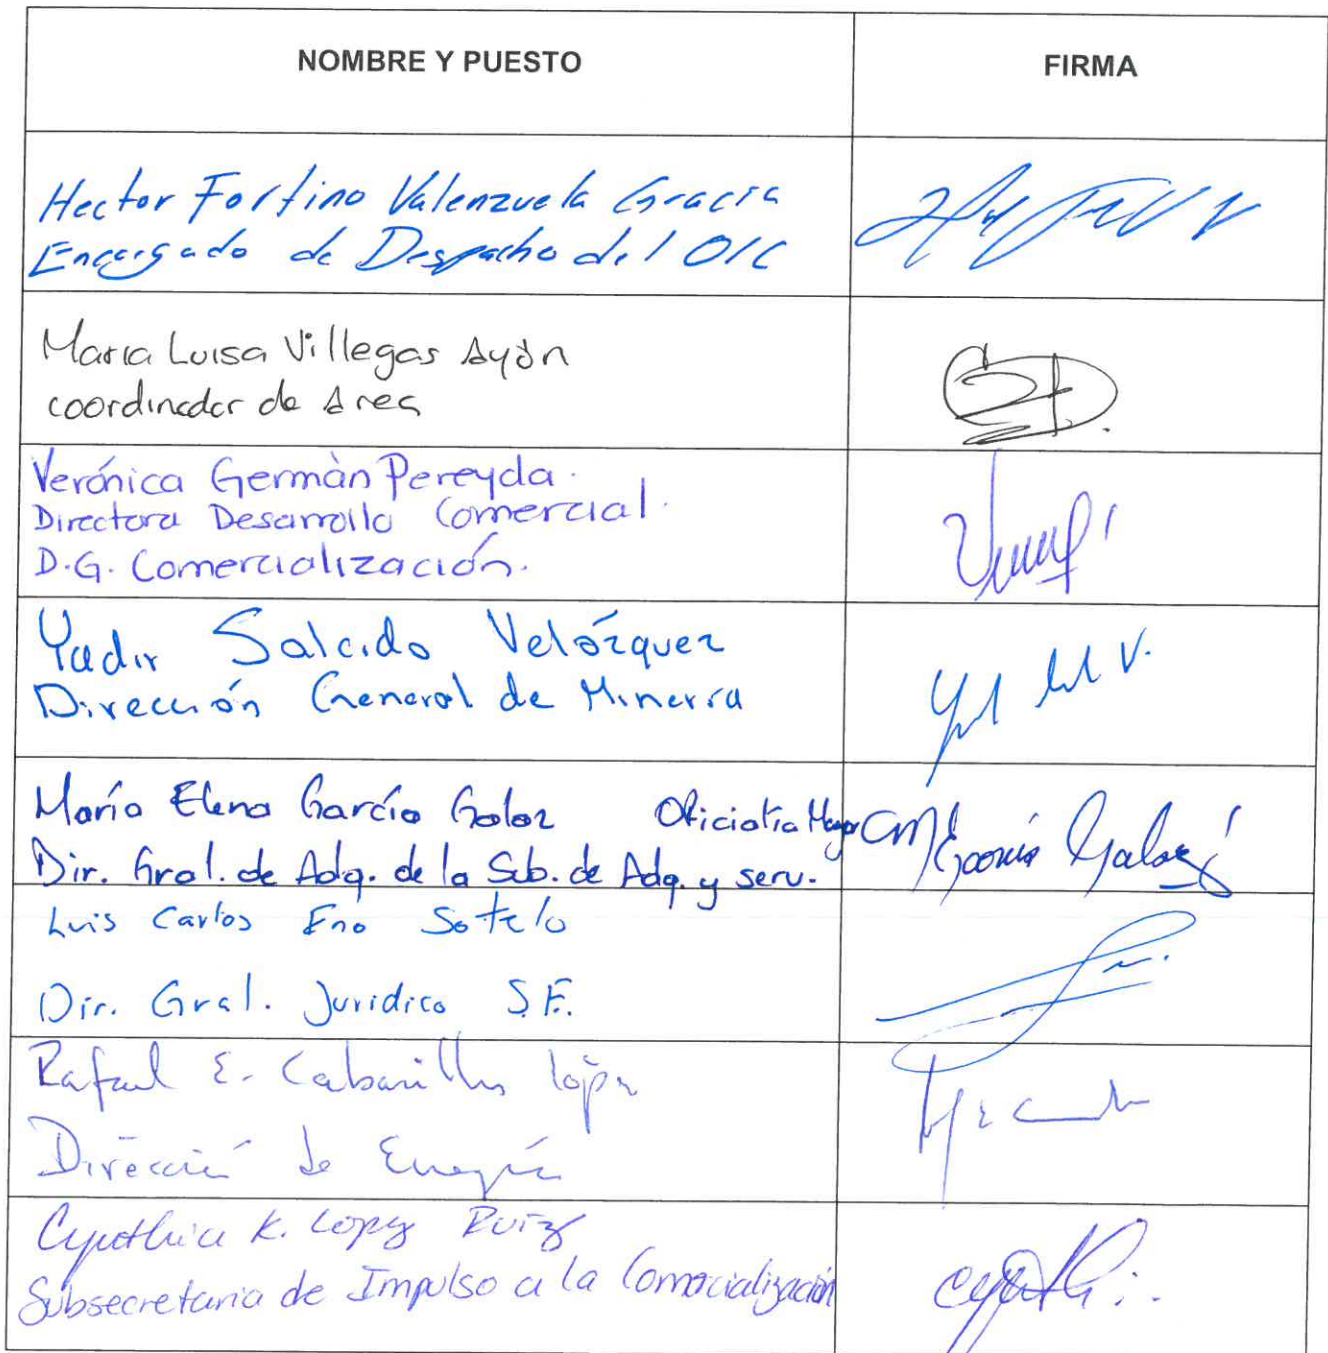 NOMBRE Y PUESTO
FIRMA
Hector Fortino Valenzuela Gracia
Encargado de Despacho del OIC
Maria Luisa Villegas Ayón
coordinador de Area
Verónica Germàn Pereyda.
Directora Desarrollo Comercial.
D.G. Comercialización.
Yadir Salcido Velázquez
Dirección General de Minería
María Elena García Galaz Oficialía Mayor
Dir. Gral. de Adq. de la Sub. de Adq. y serv.
García Galaz
Luis Carlos Eno Sotelo
Dir. Gral. Juridico S.E.
Rafael E. Cabanillas López
Dirección de Energía
Cynthia K. Lopez Ruiz
Subsecretaria de Impulso a la Comercialización